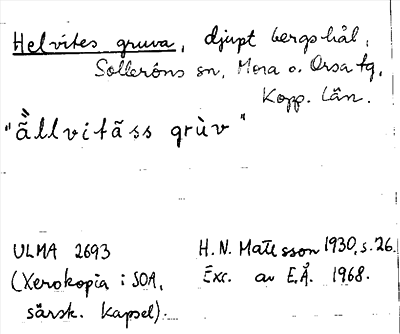 Helvites gruva, djupt bergshål,
Solleröns sn, Mora o. Orsa tg,
Kopp. län.
"ä̀̃llvitãss grùv"
ULMA 2693
(Xerokopia i SOA,
särsk. kapsel).
H. N. Matsson 1930, s. 26.
Exc. av E.Å. 1968.